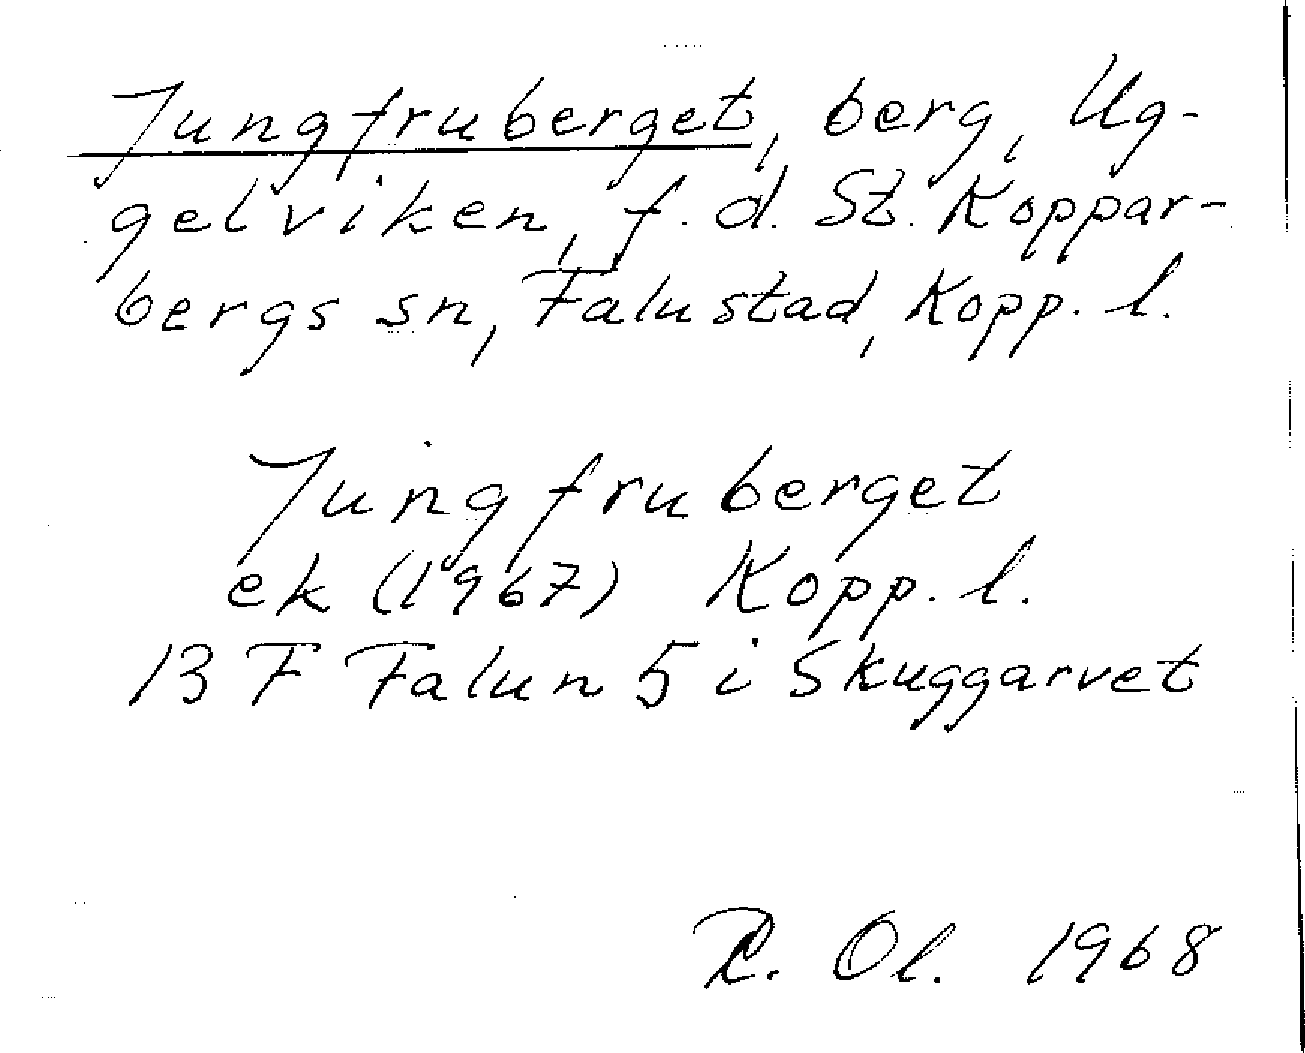 Jungfruberget, berg, Ug-
gelviken, f. d. St. Koppar-
bergs sn, Falu stad, Kopp. l.
Jungfruberget
ek (1967) Kopp. l.
13 F Falun 5 i Skuggarvet
R. Ol. 1968